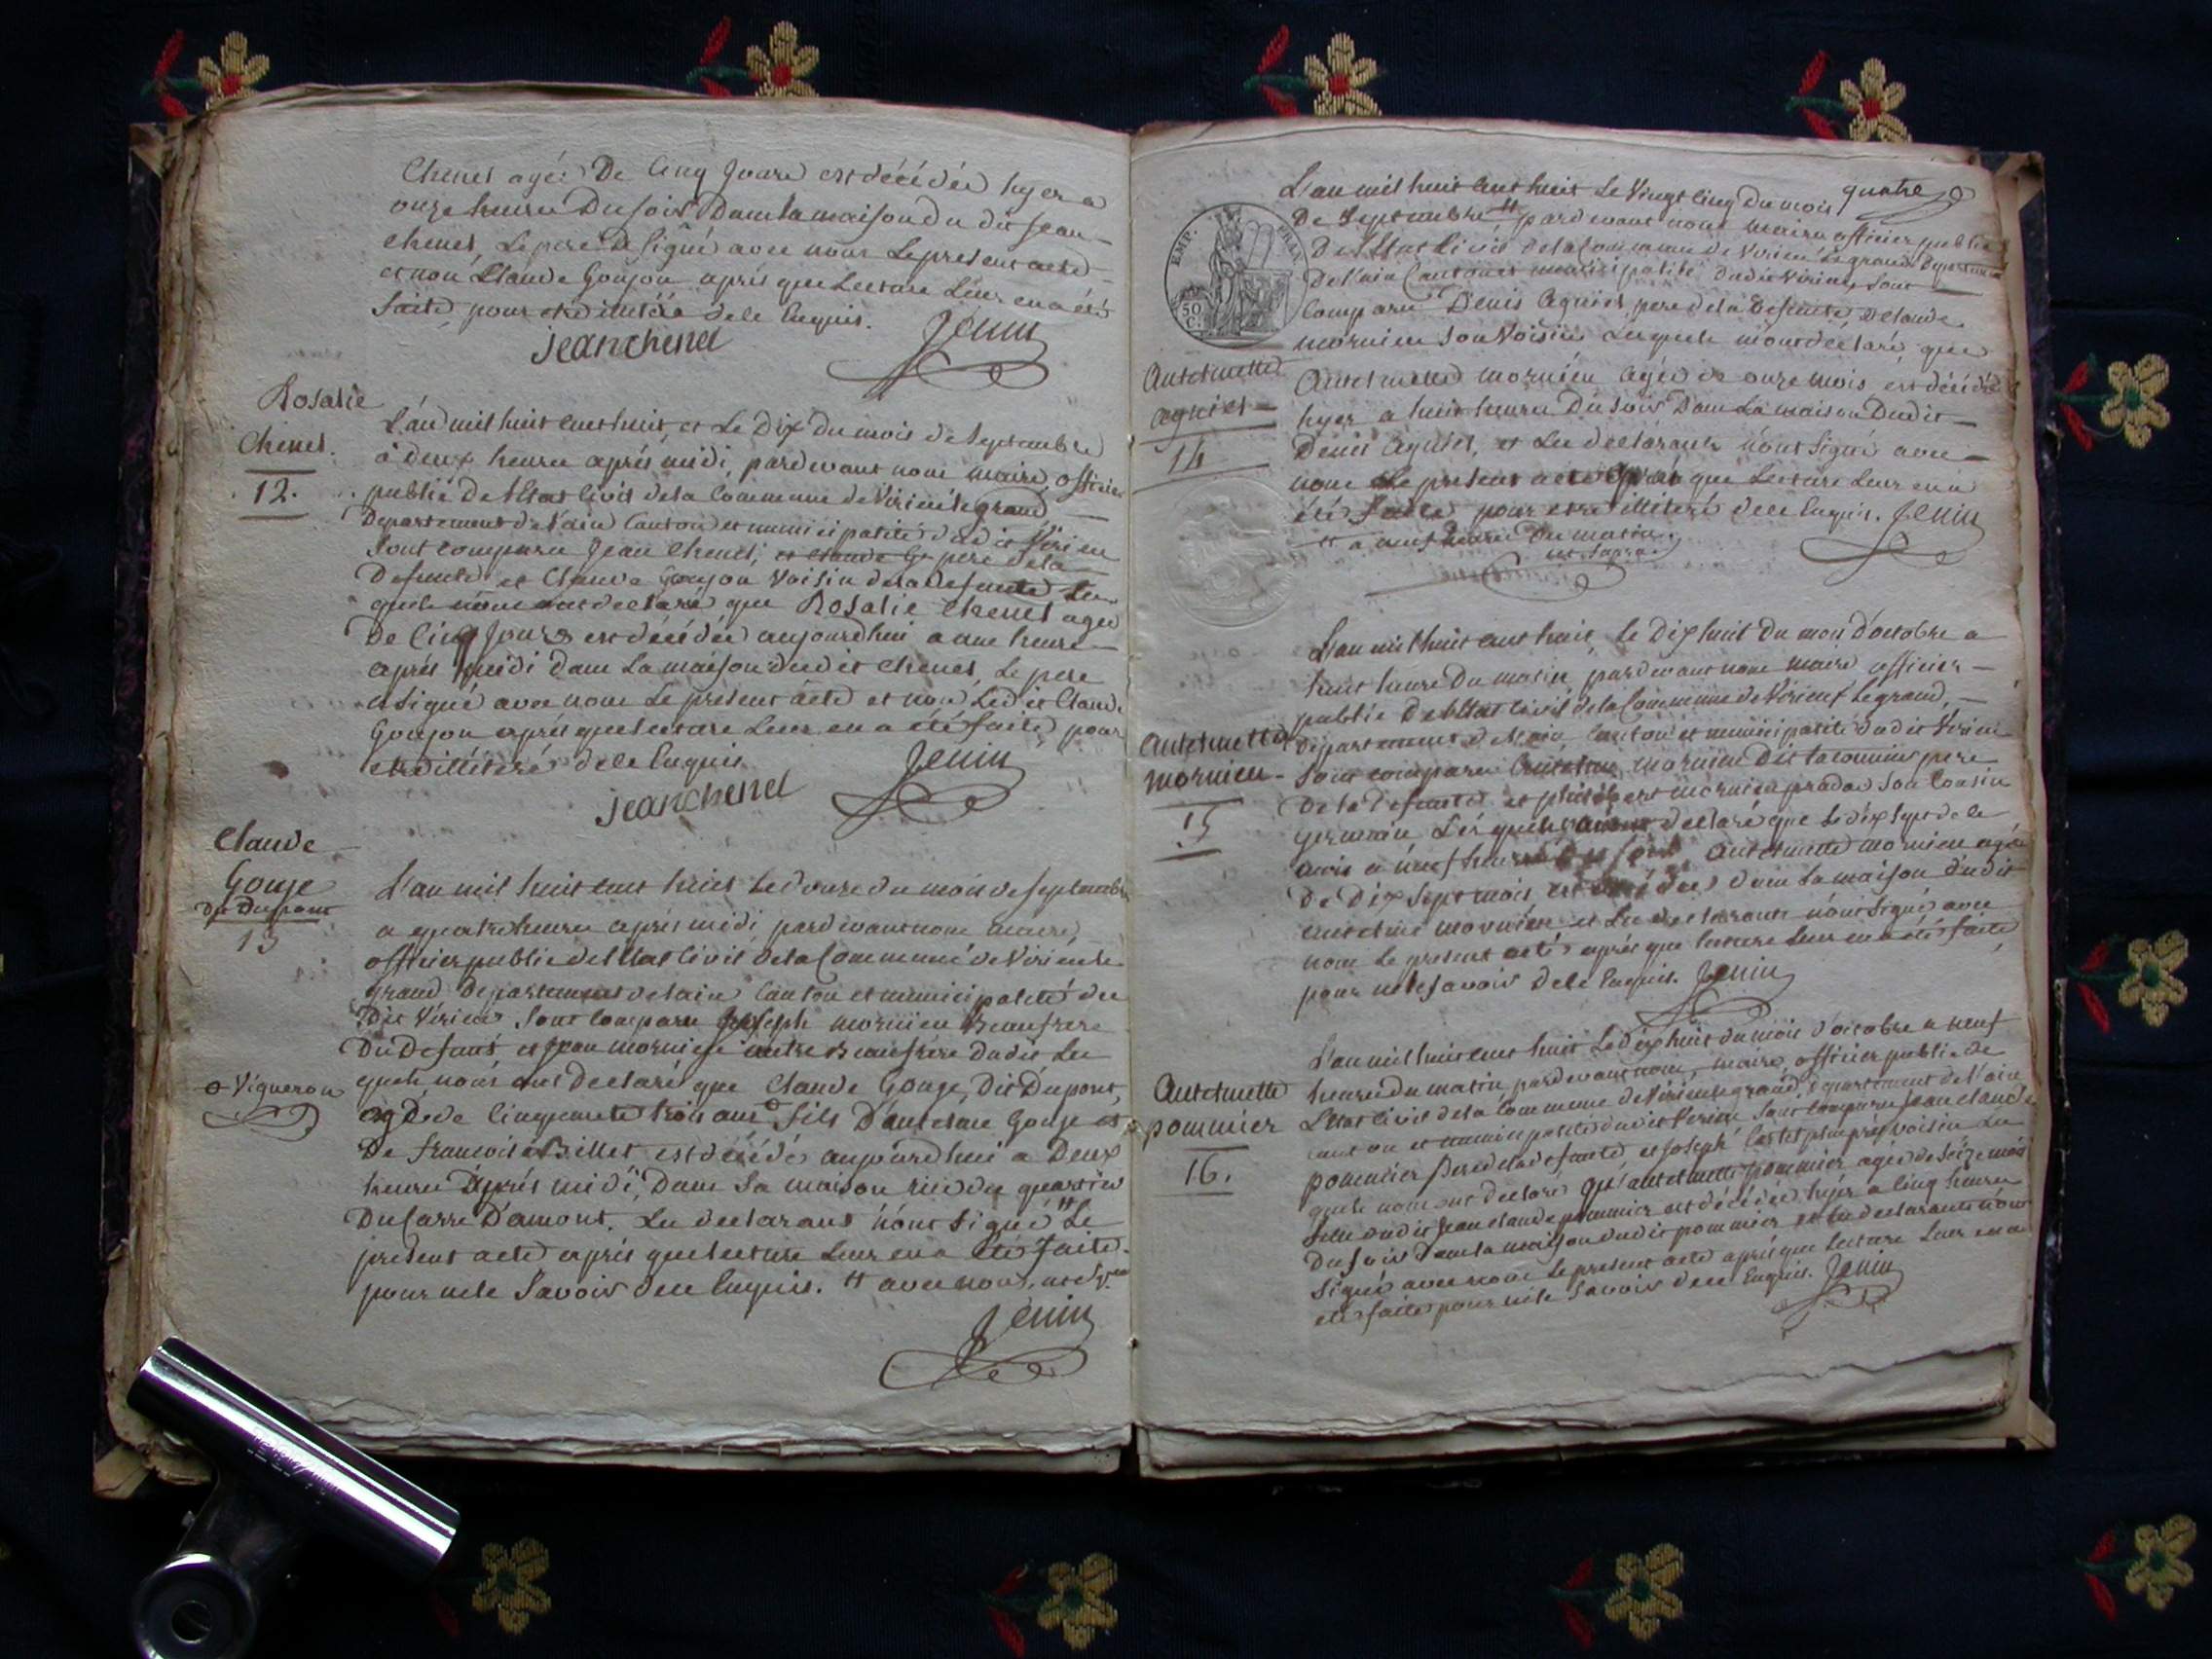 Chenel agée De Cinq Jours est décédée hyer a
onze heures Du soir Dans la maison du dit jean
chenel, Le pere a signé avec nous Le present acte
et non Claude Goujon après que Lecture Leur en a été
faite, pour etre illitéré de ce Enquis.
jean chenel Jenin
Rosalie
Chenel.
12.
L'an mil huit cent huit, et Le Dix Du mois de septembre
à deux heures après midi, pardevant nous maire, officier
public de l'Etat Civil de la Commune de Virieu le grand
Departement de l'ain Canton et municipalité dudit Virieu
Sont comparu Jean Chenel, et Claude G pere de la
Defunte et Claude Goujon Voisin de la Defunte Les
quels nous ont declaré que Rosalie Chenel agee
De Cinq Jours est décédée aujourdhui a une heure
après midi dans La maison dudit chenel, Le pere
a signé avec nous Le present acte et non Ledit Claude
Goujon après que lecture Leur en a été faite, pour
etre illitéré de ce Enquis.
jean chenel Jenin
Claude
Gouje
dit Dupont
13
L'an mil huit cent huit Le douze du mois de septembre
a quatre heures après midi pardevant nous maire,
officier public de l'Etat Civil de la Commune de Virieu le
grand Departement de lain Canton et municipalité du
Dit Virieu Sont Comparu Joseph mornieu Beaufrere
Du Defunt, et Jean mornieu autre Beaufrère dudit Les
quels nous ont declaré que Claude Gouge, Dit Dupont,
o Vigneron
agé de Cinquante trois ans o fils D'antelme Gouje et
De francoise Billet est décédé aujourdhui a Deux
heures Après midi, Dans Sa maison du quartier
D'amont. Les declarants n'ont signé # Le
présent acte après que lecture Leur en a été faite.
pour ne le Savoir de ce Enquis. # avec nous,
Jenin
quatre
L'an mil huit cent huit Le Vingt Cinq du mois
De Septembre # pardevant nous maire officier public
De l'Etat Civil de la Commune de Virieu le grand Departement
De l'ain Canton et municipalité dudit Virieu, Sont
EMP. FRAN.
50 C.
Comparu Denis Agniel, pere de la Defunte, & Claude
mornieu Son Voisin Lesquels n'ont déclaré, que
Antelmette
agniel
14
Antelmette mornieu Agée de onze mois est décédée
hyer a huit heures Du soir Dans La maison Dudit
Denis Agniel, et Les déclarants n'ont Signé avec
nous Le present acte Après que Lecture Leur en a
été faite pour etre illitéré de ce Enquis. Jenin
# a neuf heures Du matin.
L'an mil huit cent huit, Le Dix huit Du mois D'octobre a
huit heures Du matin, pardevant nous maire officier
public De l'Etat Civil de la Commune de Virieux Le grand,
Antelmette
mornieu
15
Département de l'ain, Canton et municipalité dudit Virieu
Sont comparu Antelme mornieu Dit pere
De la Defunte et philibert mornieu Son Cousin
germain Lesquels declaré que Le dix Sept de ce
mois a neuf heures Antelmette mornieu agée
De Dix Sept mois, est décédée dans La maison dudit
antelme mornieu et Les declarants n'ont signé avec
nous Le present acte après que lecture Leur en a été faite
pour ne le savoir de ce Enquis. Jenin
L'an mil huit cent huit Le dix huit du mois d'octobre a neuf
Antelmette
pommier
16.
heures du matin pardevant nous, maire, officier public de
L'Etat Civil de la Commune de Virieu le grand, departement de l'ain
Canton et municipalité dudit Virieu Sont Comparu Jean Claude
pommier Pere de la defunte et Joseph voisin Les
quels nous ont declaré qu'antelmette pommier agée de Seize mois
fille dudit Jean claude pommier est décédée hyer a Cinq heures
Du Soir Dans la maison dudit pommier et les declarants n'ont
Signé avec nous Le present acte après que Lecture Leur en a
été faite pour ne le Savoir de ce Enquis. Jenin